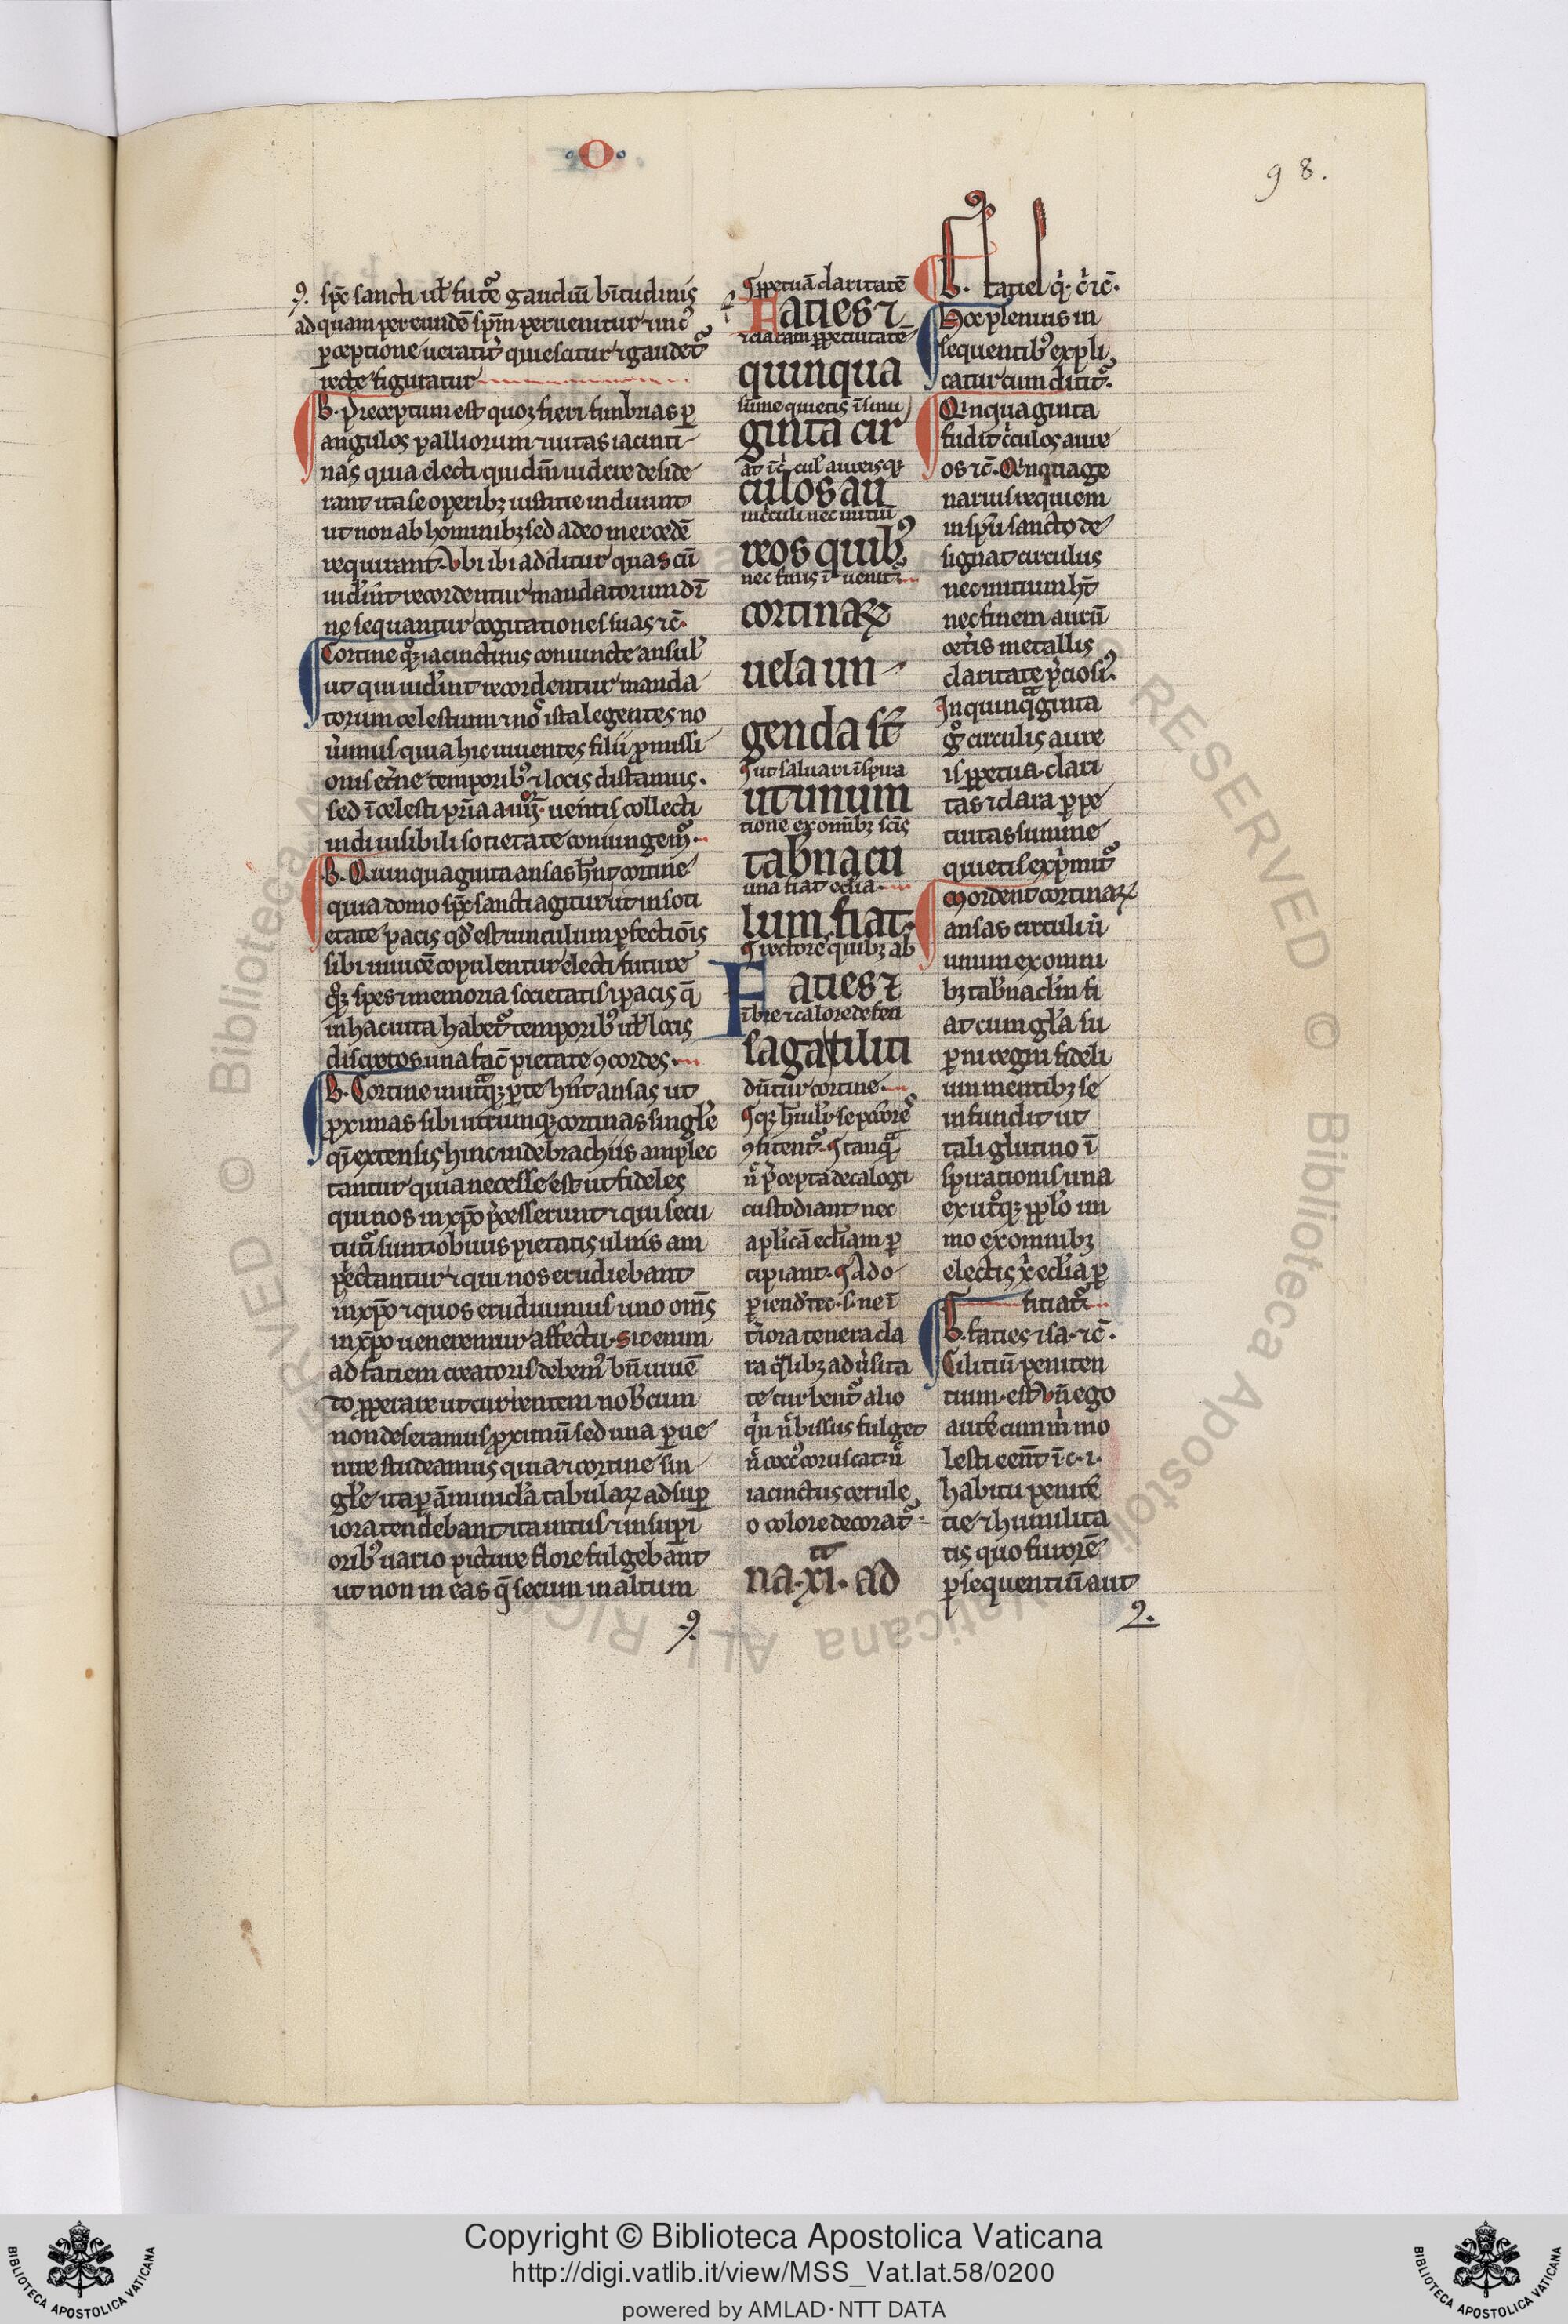 .O.
98.
9. sp̄c sancti ul' futᵉ͛ gaudiū bītudinis
ad quam per eundē spm̄ peruenitur ⁊ unc̾
ꝑceptione ueraciť quiescitur ⁊ gaudet᷑
recte figuratur
B. Preceptum est quoꝫ fieri fimbrias ꝑ
angulos palliorum ⁊ uitas iacincti
nas quia electi quidm̄ uidere deside
rant ita se operibꝫ iusticie induunt
ut non ab hominibꝫ sed a deo mercedē
requirant. Vbi ibi additur quas cū
uid'int recordentur mandatorum dn̄i
ne sequantur cogitationes suas ⁊c̄.
Cortine qͦꝫ iacinctinis coniuncte ansul'
ut qui uid'int recordentur manda
torum celestium ⁊ nos͛ ista legentes no
u'imus quia hic uiuentes filii ꝓmissi
onis et'ne temporibꝰ ⁊ locis distamus.
sed ī celesti pr̄ia a .iiij. uentis collecti
indiuisibili societate coniungemᷣ
B. Quinquaginta ansas hn̄t cortine
quia dono sp̄c sancti agitur ut in soci
etate pacis qd' est uinculum ꝑfectiōis
sibi inuicē copulentur electi future
qͦꝫ spes ⁊ memoria societatis ⁊ pacis q̄
in hac uita habet᷑ temporibꝰ ul' locis
discretos una fac̄ pietate ꝯcordes.
B. Cortine in utᵃqꝫ ꝑte hn̄t ansas ut
ꝓximas sibi utrimqꝫ cortinas singl'e
qͣ extensis hinc inde brachiis amplec
tantur quia necesse est ut fideles
qui nos in xp̄o p̄cesserunt ⁊ qui secu
turi sunt obuiis pietatis ulnis am
plectantur ⁊ qui nos erudiebant
in xp̄o ⁊ quos erudiuimus uno om̄s
in xp̄o ueneremur affectu. Sic enim
ad faciem creatoris debemꝰ bn̄ uiuē
do ꝓperare ut currentem nob'cum
non deseramus ꝓximū sed una ꝑue
nire studeamus quia ⁊ cortine sin
gl'e ita ꝑ āmincl'a tabulaꝝ ad suꝑ
iora tendebant ita intus ⁊ in suꝑi
oribꝰ uario picture flore fulgebant
ut non in eas q̄ secum in altum
9.
¶ ꝑpetuā claritatē
Facies ⁊
⁊ claram ꝑpetuitatē
quinqua
sūme quietis ī sinu
ginta cir
culos au
in circuli nec initiū
reos quibꝰ
nec finis īuenit᷑
cortinaꝝ
uela iun
genda sꝉ
¶ ut saluari īspira
ut unum
tione ex om̄ibꝫ scīs
tab'nacu
una fiat ecl'ia
lum fiat.
¶ rectores quibꝫ ab
Facies ⁊
ibre ⁊ calore defen
saga cilici
dūtur cortine.
¶ qꝫ h'uilr' se pctōres
ꝯfitent᷑. ¶ tanqͣ
n̄ p̄cepta decalogi
custodiant nec
apl'icā eccl'iam ꝑ
cipiant. ¶ Ad o
periend' tec. s. ne ī
t'iora tenera cla
ra qͥlibꝫ aduersita
te turbent᷑ alio
qⁱn n̄ bissus fulget
n̄ coccꝰ coruscat n̄
iacinctus cerule
o colore decorat᷑
na .xi. ad
B. Facies q̇. c̓. ⁊c̄.
Hoc plenius in
sequentibꝰ expli
catur cum dicit᷑.
Q̇nquaginta
fudit c̓culos aure
os ⁊c̄. Q̇nquage
narius requiem
in spū sancto de
signat circulus
nec initium h̄t
nec finem aurū
cet'is metallis
claritate p̄ciosiꝰ.
In quinqᵃginta
gͦ circulis aure
is ꝑpetua clari
tas ⁊ clara ꝑpe
tuitas summe
quietis exp̓mit᷑
Mordent cortinaꝝ
ansas circuli ū
unum ex omni
bꝫ tab'nacl'm fi
at cum gl'a su
ꝑni regni fideli
um mentibꝫ se
infundit ut
tali glutino ī
spirationis una
ex utͦqꝫ pp̄lo im
mo ex omnibꝫ
electis x̓ ecl'ia ꝑ
ficiat᷑
B. Facies ⁊ sa. ⁊c̄.
Ciliciū peniten
cium est. Vn̄ ego
autē cum m̓ mo
lesti eēnt ī. c. i.
habitu penitē
tie ⁊ humilita
tis quo furorē
ꝑsequentiū aut
9.
Copyright © Biblioteca Apostolica Vaticana
http://digi.vatlib.it/view/MSS_Vat.lat.58/0200
powered by AMLAD·NTT DATA
BIBLIOTECA APOSTOLICA VATICANA
BIBLIOTECA APOSTOLICA VATICANA